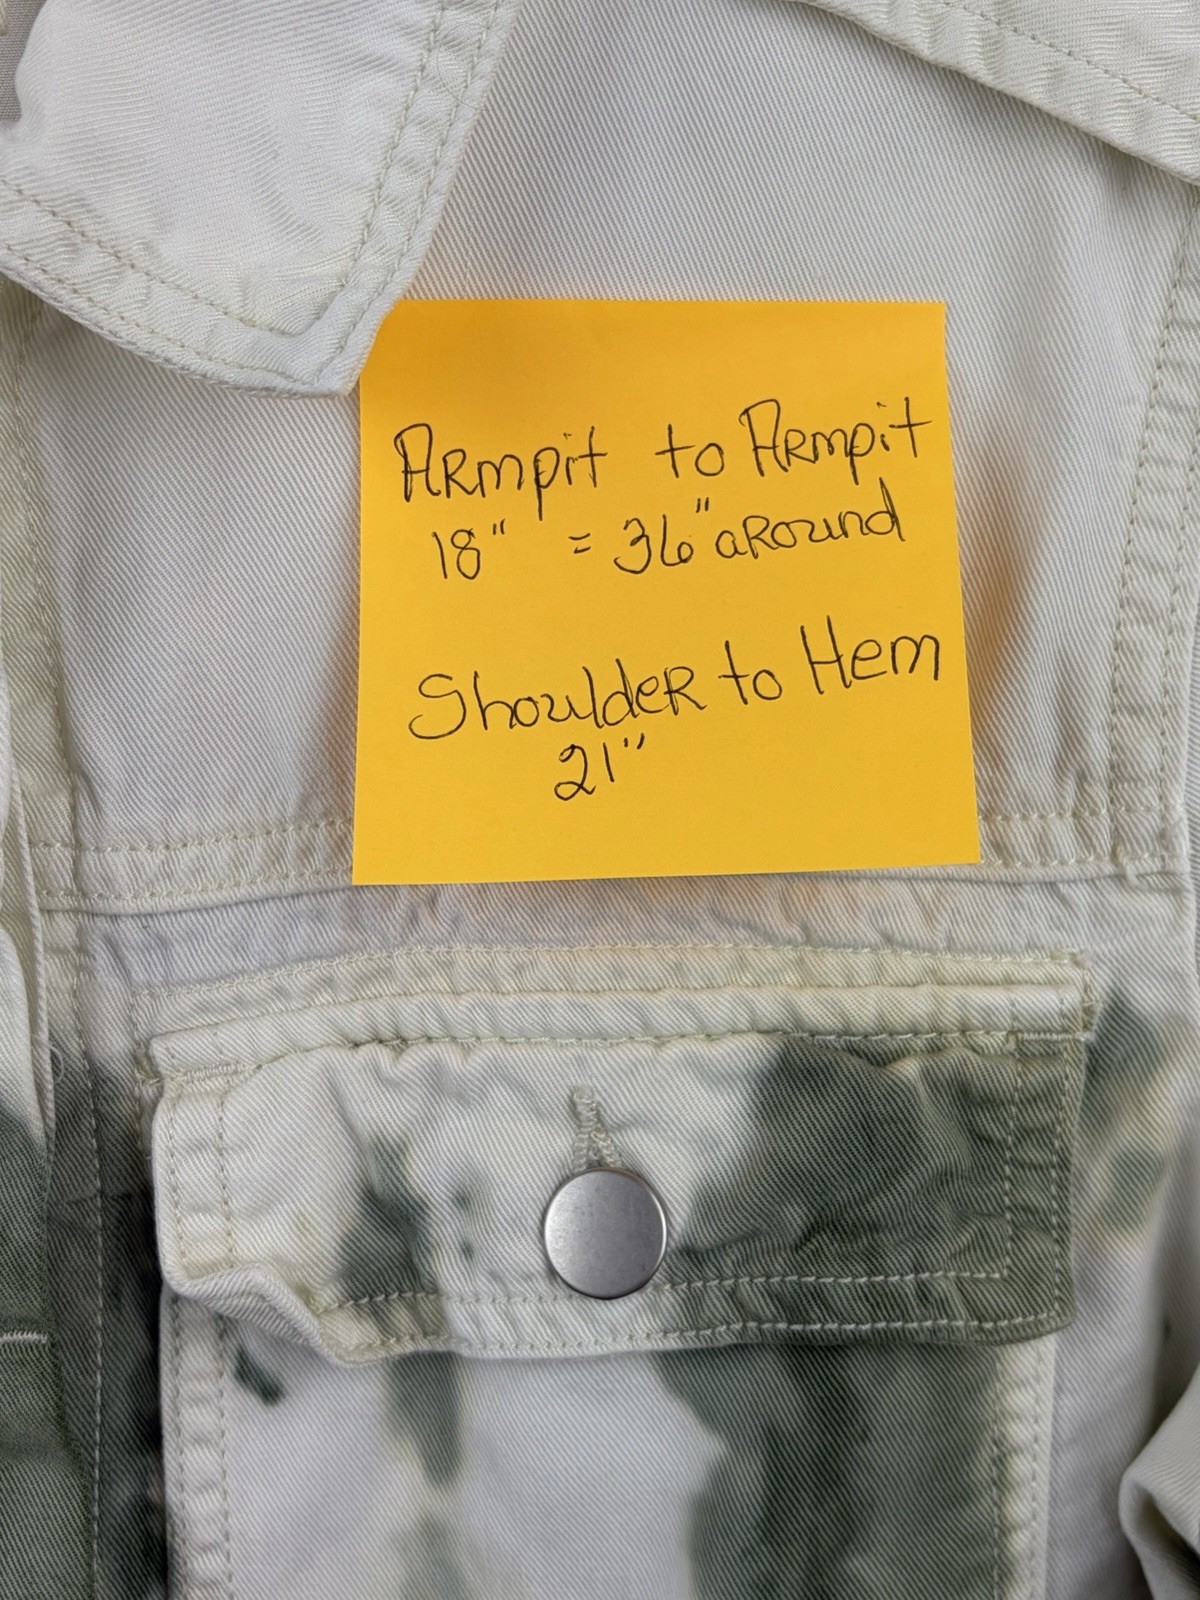 Armpit to Armpit
18" = 36" around
Shoulder to Hem
21"